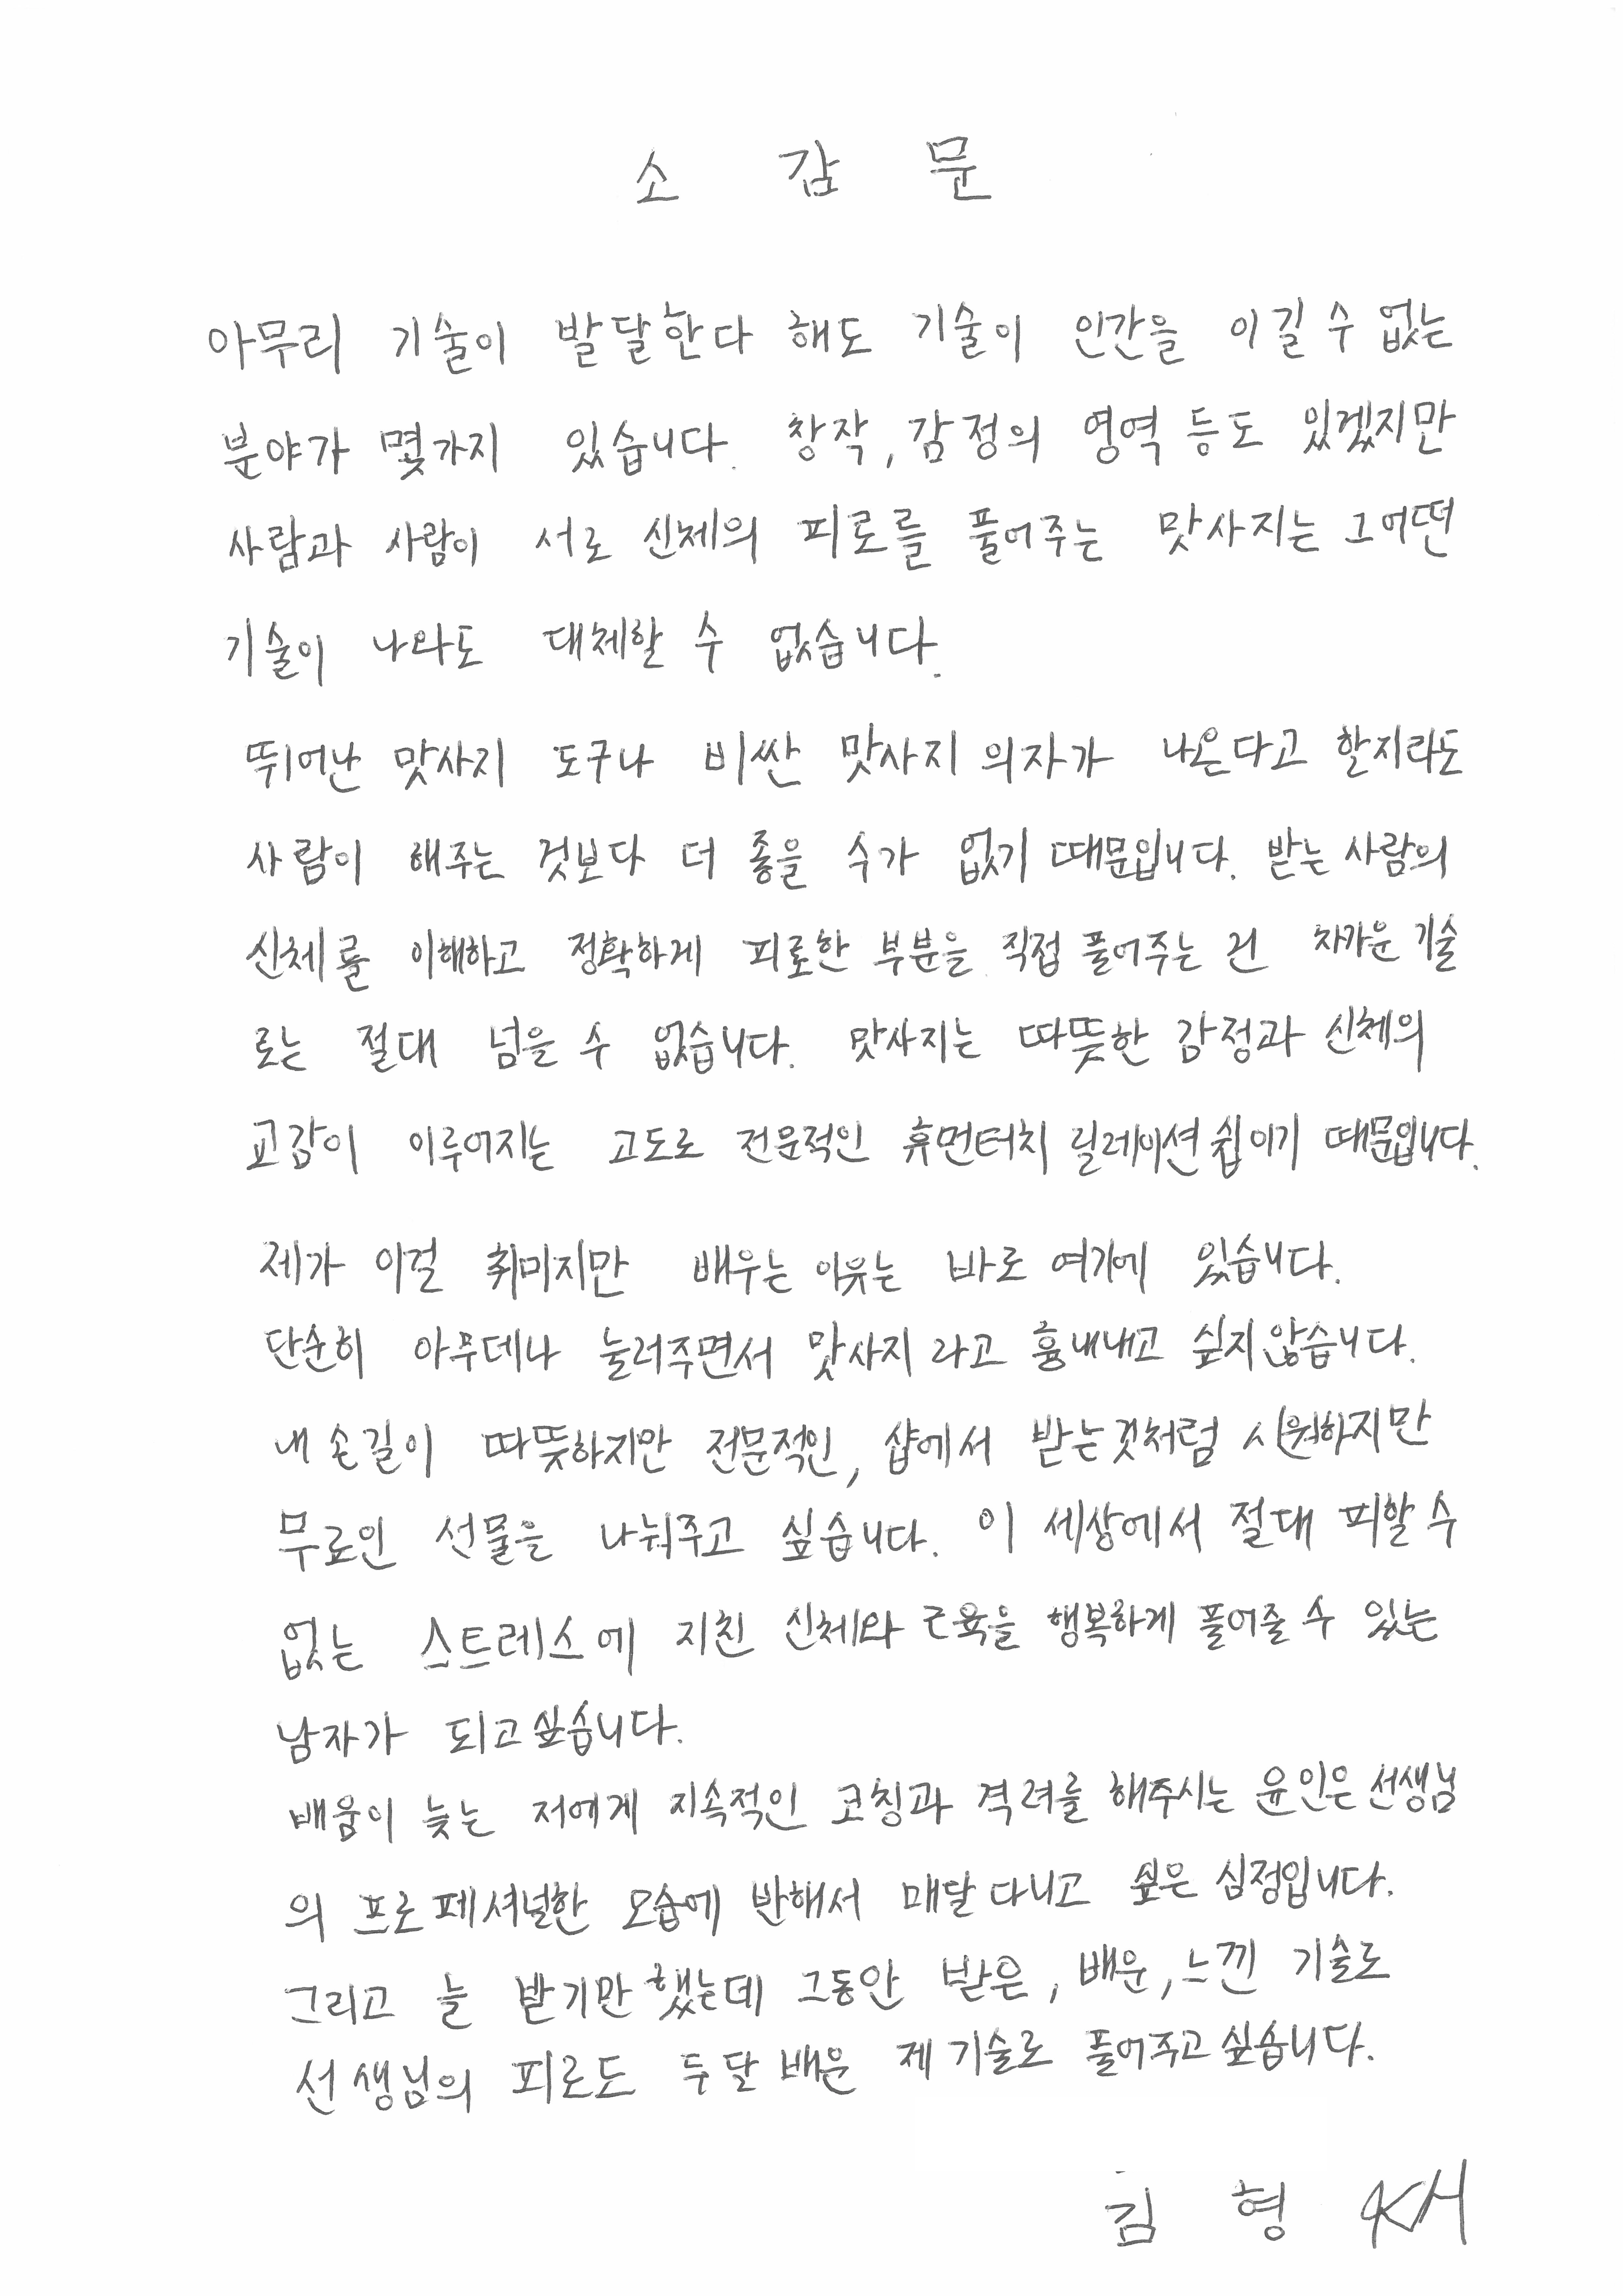 소 감 문
아무리 기술이 발달한다 해도 기술이 인간을 이길 수 없는
분야가 몇가지 있습니다. 창작, 감정의 영역 등도 있겠지만
사람과 사람이 서로 신체의 피로를 풀어주는 맛사지는 그 어떤
기술이 나와도 대체할 수 없습니다.
뛰어난 맛사지 도구나 비싼 맛사지 의자가 나온다고 할지라도
사람이 해주는 것보다 더 좋을 수가 없기 때문입니다. 받는 사람의
신체를 이해하고 정확하게 피로한 부분을 직접 풀어주는 건 차가운 기술
로는 절대 넘을 수 없습니다. 맛사지는 따뜻한 감정과 신체의
교감이 이루어지는 고도로 전문적인 휴먼터치 릴레이션쉽이기 때문입니다.
제가 이걸 취미지만 배우는 이유는 바로 여기에 있습니다.
단순히 아무데나 눌러주면서 맛사지 라고 흉내내고 싶지 않습니다.
내 손길이 따뜻하지만 전문적인, 샵에서 받는것처럼 시원하지만
무료인 선물을 나눠주고 싶습니다. 이 세상에서 절대 피할 수
없는 스트레스에 지친 신체와 근육을 행복하게 풀어줄 수 있는
남자가 되고싶습니다.
배움이 늦는 저에게 지속적인 코칭과 격려를 해주시는 윤인은 선생님
의 프로페셔널한 모습에 반해서 매달 다니고 싶은 심정입니다.
그리고 늘 받기만 했는데 그동안 받은, 배운, 느낀 기술로
선생님의 피로도 두달 배운 제 기술로 풀어주고싶습니다.
김 형 KH